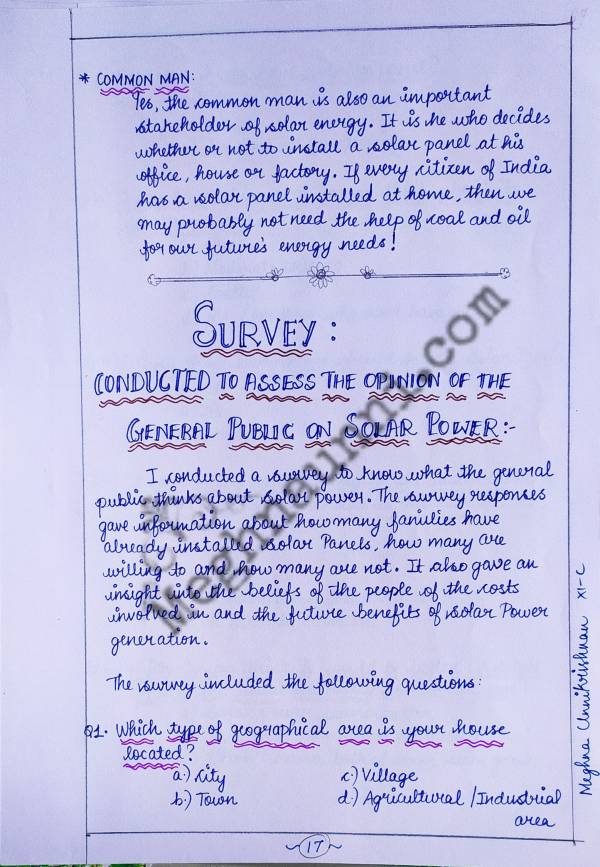 * COMMON MAN:
Yes, the common man is also an important
stakeholder of solar energy. It is he who decides
whether or not to install a solar panel at his
office, house or factory. If every citizen of India
has a solar panel installed at home, then we
may probably not need the help of coal and oil
for our future's energy needs!
SURVEY:
CONDUCTED TO ASSESS THE OPINION OF THE
GENERAL PUBLIC ON SOLAR POWER:-
I conducted a survey to know what the general
public thinks about solar power. The survey responses
gave information about how many families have
already installed Solar Panels, how many are
willing to and how many are not. It also gave an
insight into the beliefs of the people of the costs
involved in and the future benefits of Solar Power
generation.
The survey included the following questions:
Q1. Which type of geographical area is your house
located?
a.) City c.) Village
b.) Town d.) Agricultural/Industrial
area
17
Meghna Unnikrishnan XI-C